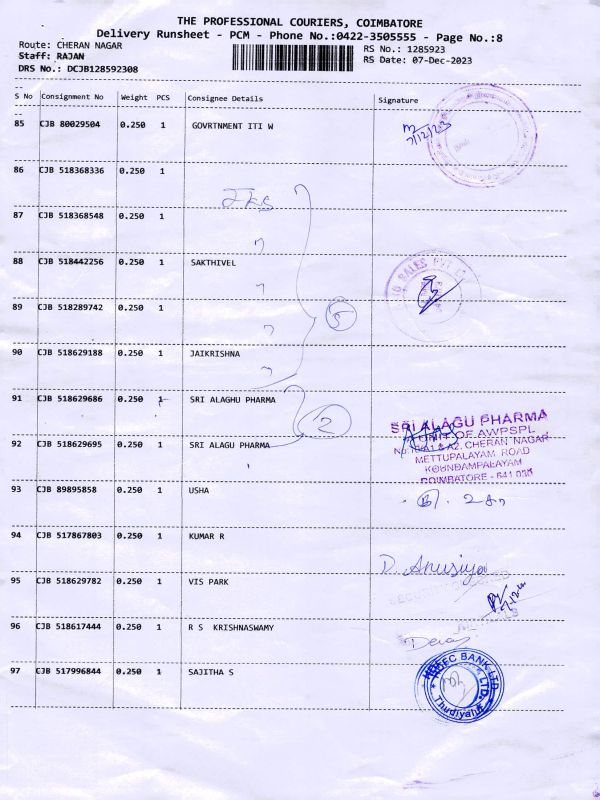 THE PROFESSIONAL COURIERS, COIMBATORE
Delivery Runsheet - PCM - Phone No.:0422-3505555 - Page No.:8
Route: CHERAN NAGAR
RS No.: 1285923
Staff: RAJAN
RS Date: 07-Dec-2023
DRS No.: DCJB128592308
S No Consignment No Weight PCS Consignee Details Signature
85 CJB 80029504 0.250 1 GOVRTNMENT ITI W
7/12/23
86 CJB 518368336 0.250 1
87 CJB 518368548 0.250 1
88 CJB 518442256 0.250 1 SAKTHIVEL
SALES PVT LT
89 CJB 518289742 0.250 1
5
90 CJB 518629188 0.250 1 JAIKRISHNA
91 CJB 518629686 0.250 1 SRI ALAGHU PHARMA
2
SRI ALAGU PHARMA
UNIT OF AWPSPL
CHERAN NAGAR
92 CJB 518629695 0.250 1 SRI ALAGU PHARMA
METTUPALAYAM ROAD
KOUNDAMPALAYAM
COIMBATORE - 641 030
93 CJB 89895858 0.250 1 USHA
94 CJB 517867803 0.250 1 KUMAR R
D. Anusiya
95 CJB 518629782 0.250 1 VIS PARK
96 CJB 518617444 0.250 1 R S KRISHNASWAMY
97 CJB 517996844 0.250 1 SAJITHA S
HDFC BANK LTD.
Thudiyalur